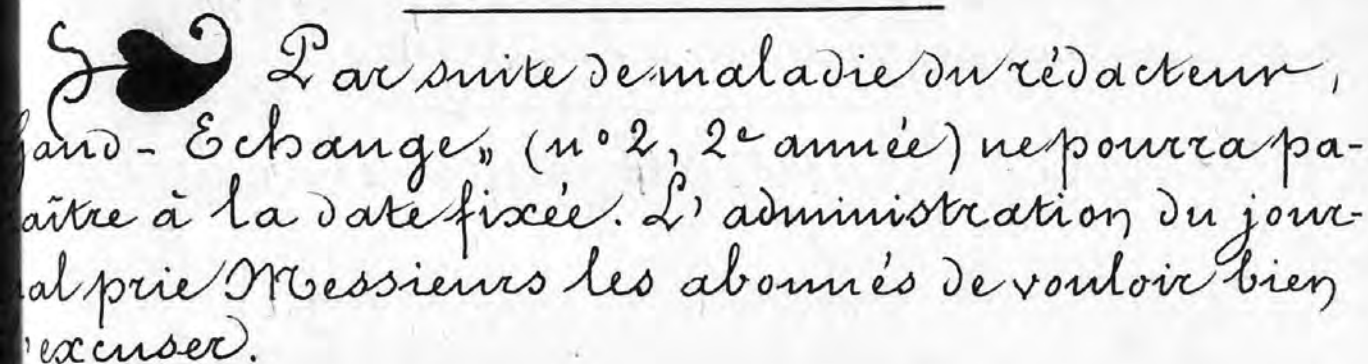 Par suite de maladie du rédacteur,
and - Echange„ (n° 2, 2e année) ne pourra pa-
aître à la date fixée. L'administration du jour-
al prie Messieurs les abonnés de vouloir bien
'excuser.